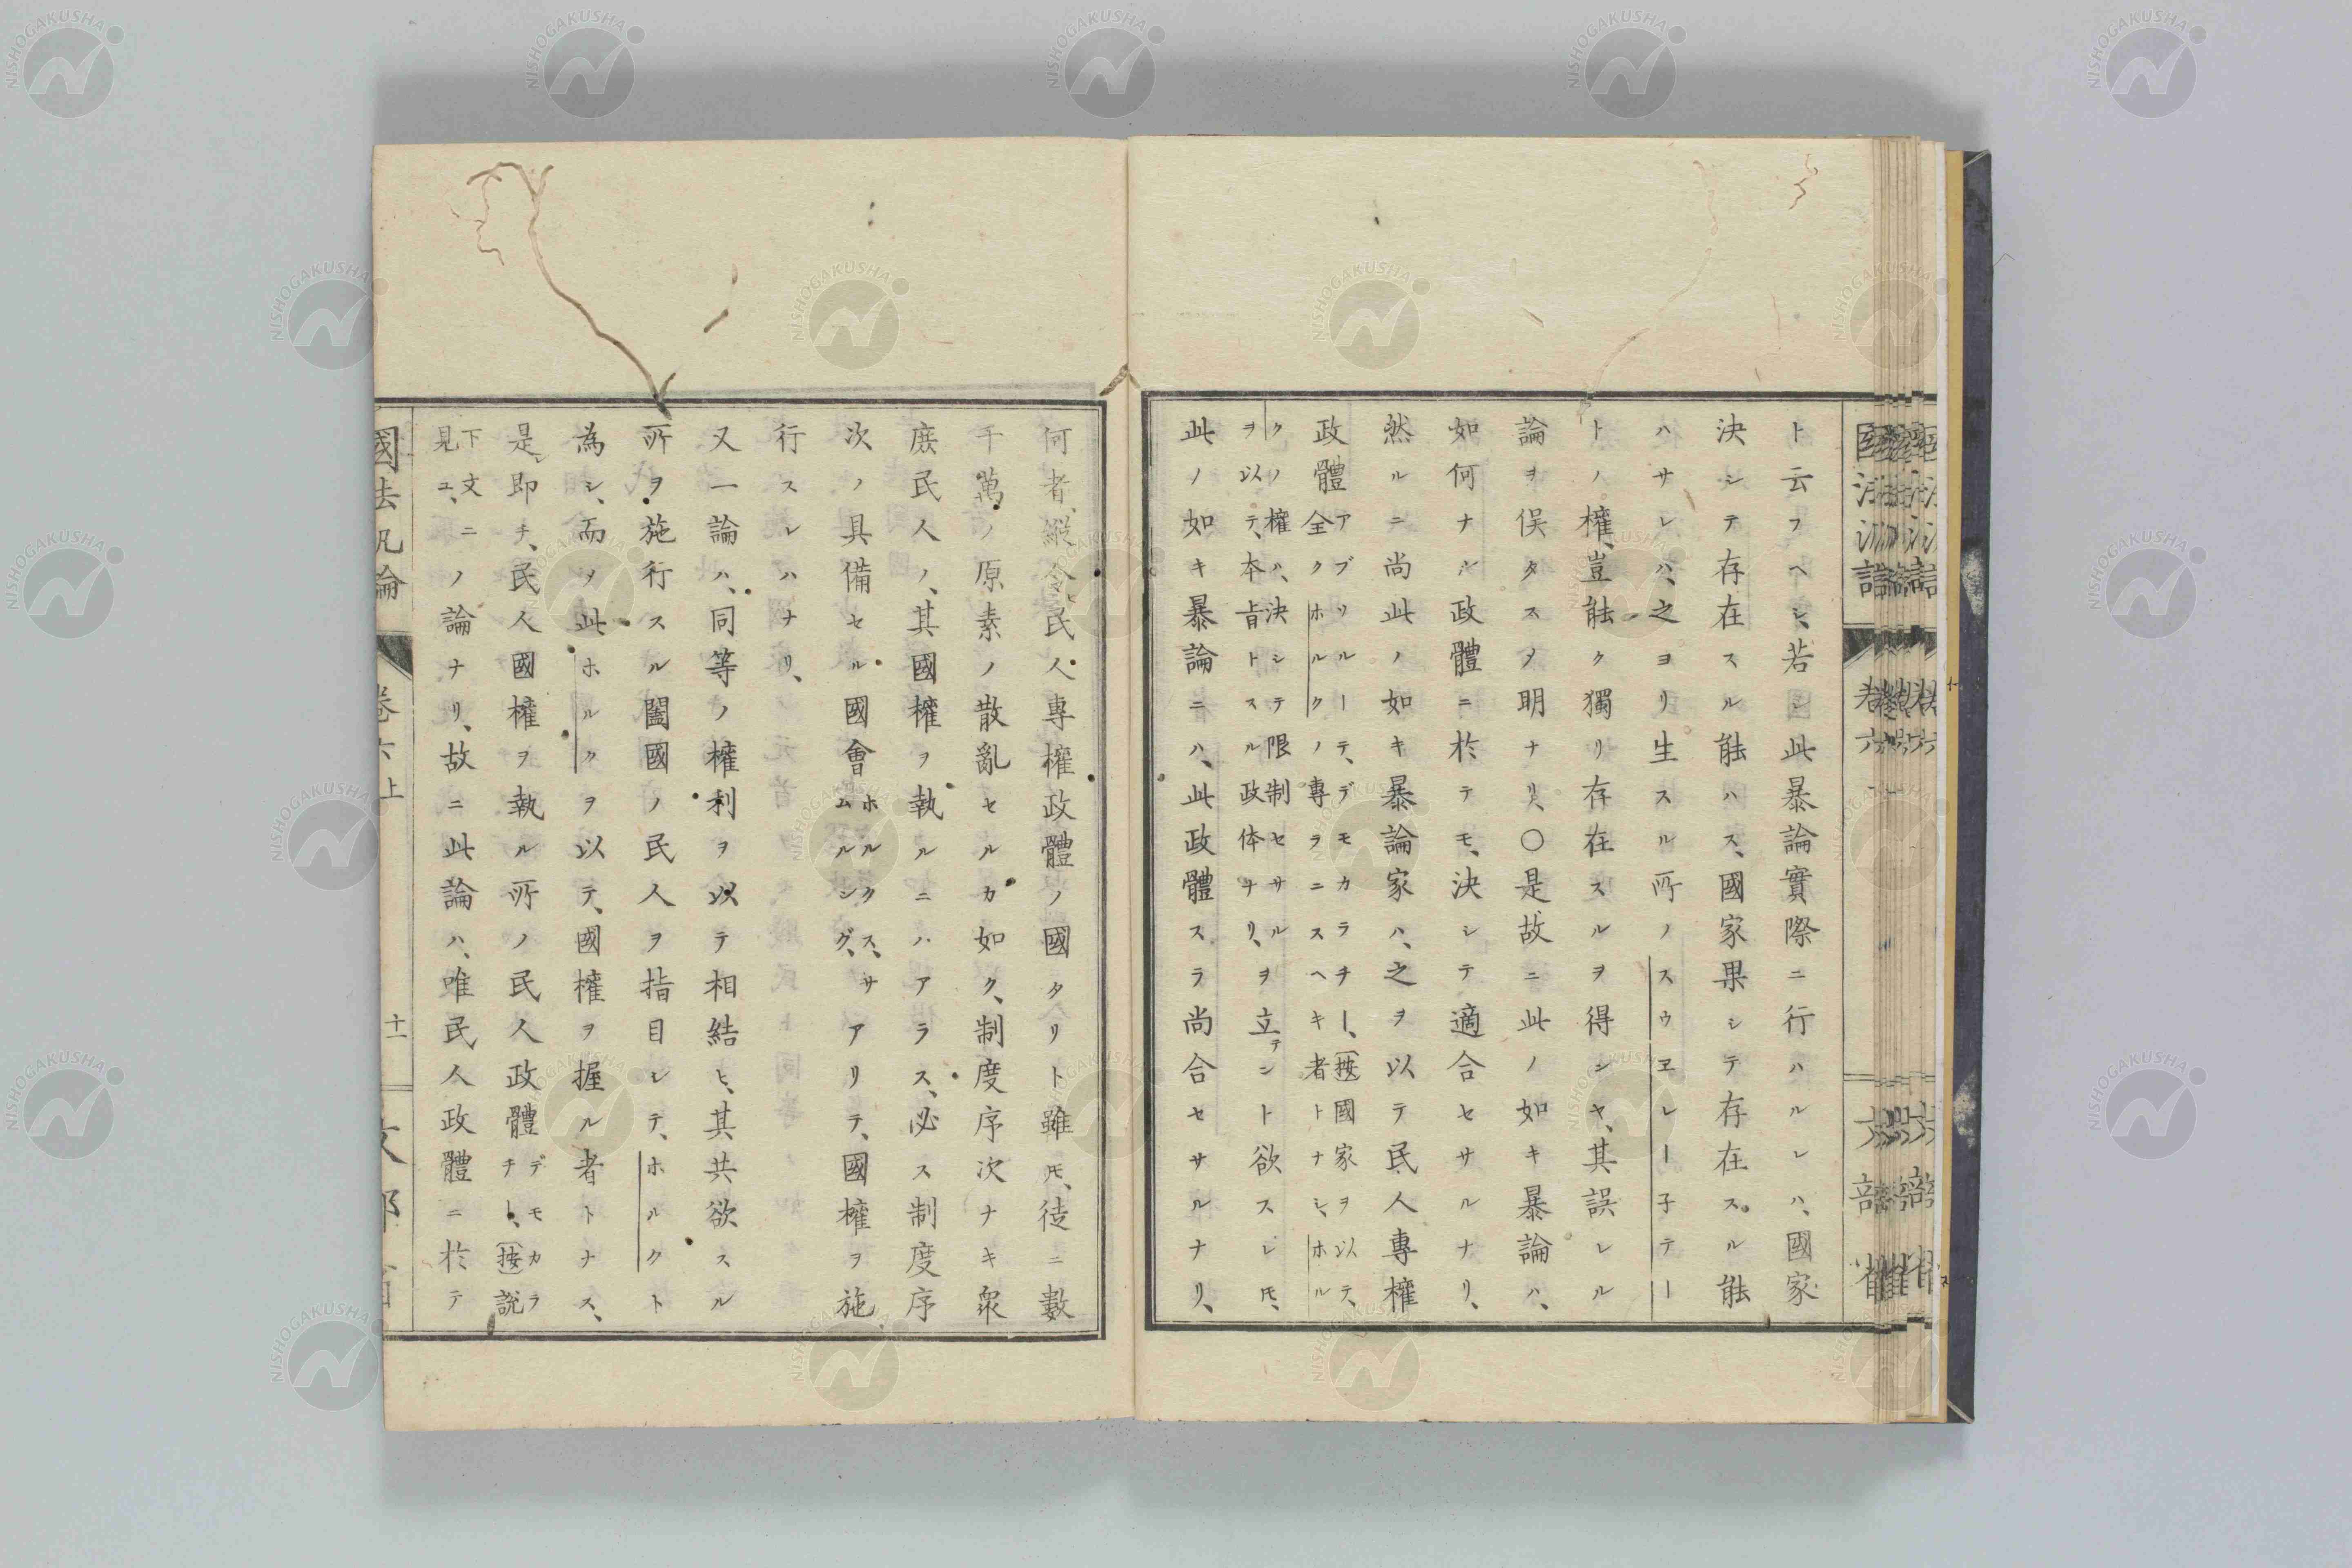 ト云フヘシ、若シ此暴論實際ニ行ハルレハ、國家
決シテ存在スル能ハス、國家果シテ存在スル能
ハサレハ、之ヨリ生スル所ノスウヱレーネテー
トノ權、豈能ク獨リ存在スルヲ得ンヤ、其誤レル
論ヲ俟タスノ明ナリ、〇是故ニ此ノ如キ暴論ハ、
如何ナル政體ニ於テモ、決シテ適合セサルナリ、
然ルニ尚此ノ如キ暴論家ハ、之ヲ以テ民人專權
政體
アブソルーテ、デモカラチー、〔按〕國家ヲ以テ、
全クホルクノ專ラニスヘキ者トナシ、ホル
クノ權ハ、決シテ限制セサル
ヲ以テ、本旨トスル政体ナリ、
ヲ立テント欲スレ𪜈、
此ノ如キ暴論ニハ、此政體スラ尚合セサルナリ、
何者、縱令ヒ民人專權政體ノ國タリト雖𪜈、徒ニ數
千萬ノ原素ノ散亂セルカ如ク、制度序次ナキ衆
庶民人ノ、其國權ヲ執ルニハアラス、必ス制度序
次ノ具備セル國會
ホルクス、サ
ムルング、
アリテ、國權ヲ施
行スレハナリ、
又一論ハ、同等ノ權利ヲ以テ相結ヒ、其共欲スル
所ヲ施行スル闔國ノ民人ヲ指目シテ、ホルクト
為シ、而ノ此ホルクヲ以テ、國權ヲ握ル者トナス、
是レ即チ、民人國權ヲ執ル所ノ民人政體
デモカラ
チー、〔按〕說
下文ニ
見ユ、
ノ論ナリ、故ニ此論ハ、唯民人政體ニ於テ
國法汎論
卷六上
十一
文部省
NISHOGAKUSHA